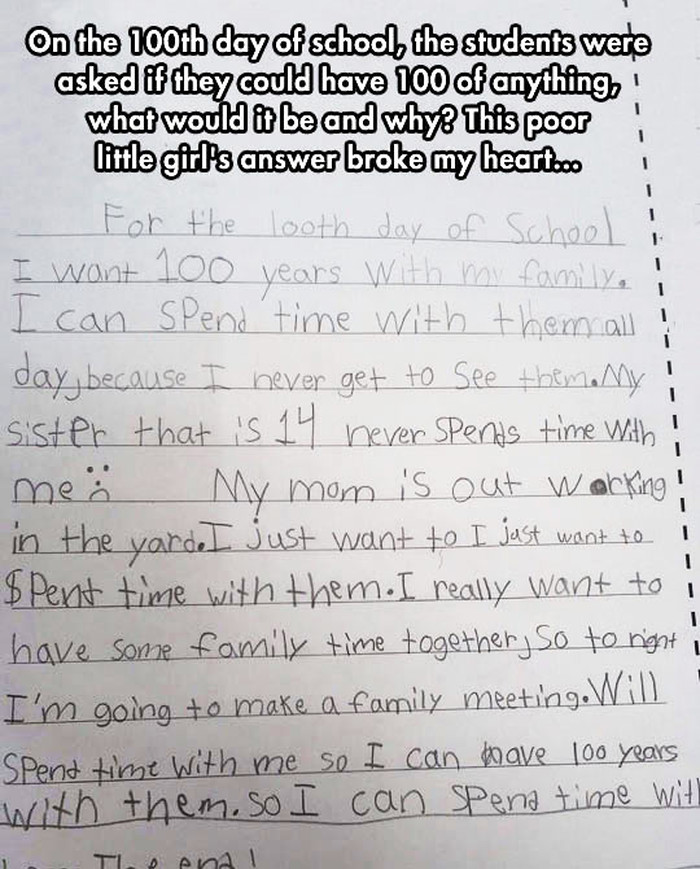 On the 100th day of school, the students were
asked if they could have 100 of anything,
what would it be and why? This poor
little girl's answer broke my heart...
For the 100th day of School
I want 100 years with my family.
I can spend time with them all
day, because I never get to see them. My
sister that is 14 never spends time with
me :( My mom is out working
in the yard. I just want to I just want to
$pent time with them. I really want to
have some family time together, so to right
I'm going to make a family meeting. Will
spend time with me so I can have 100 years
with them. so I can spend time with
The end!